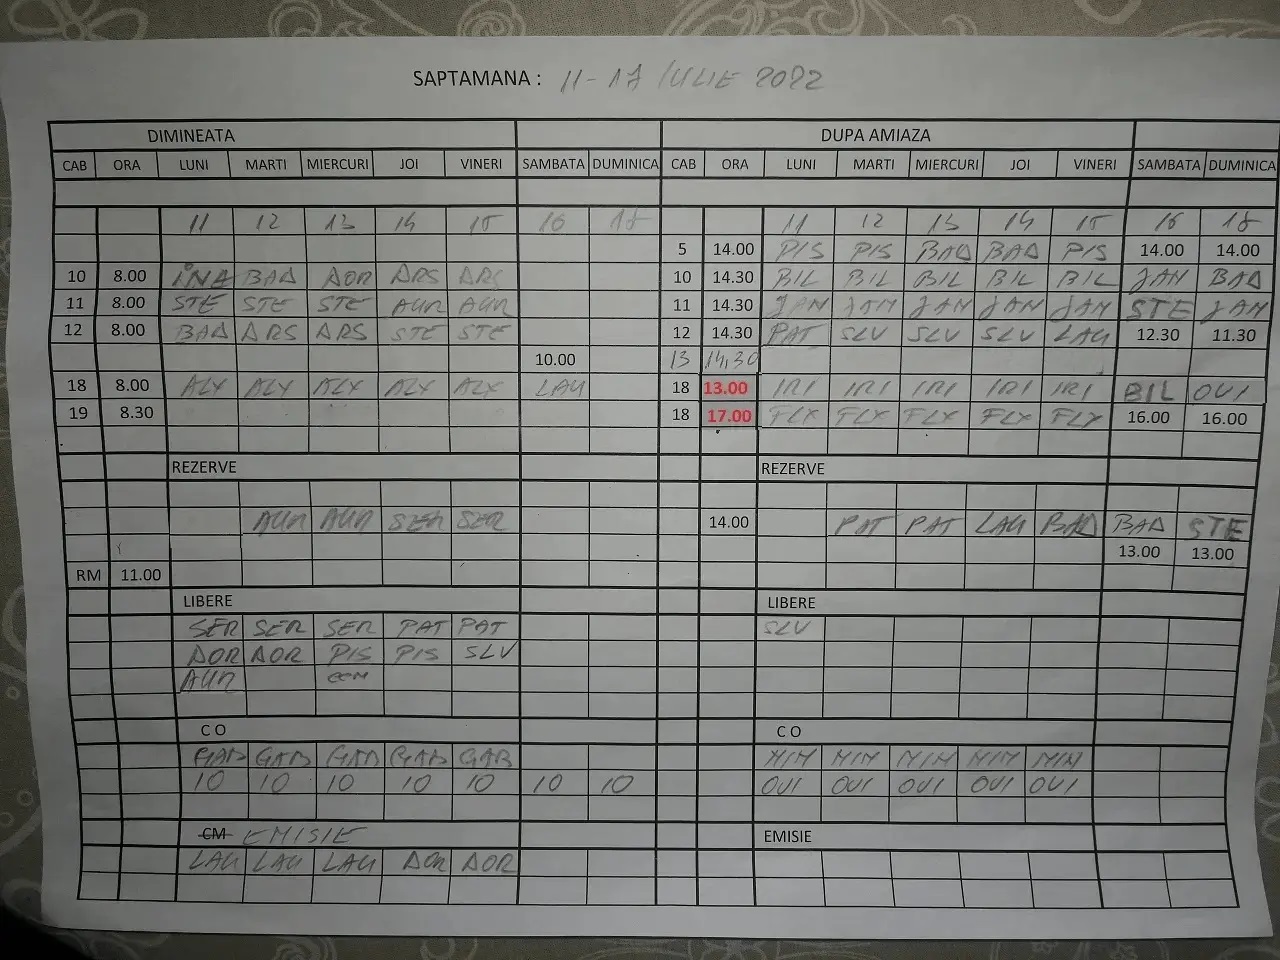 SAPTAMANA : 11-17 IULIE 2022
DIMINEATA DUPA AMIAZA
CAB ORA LUNI MARTI MIERCURI JOI VINERI SAMBATA DUMINICA CAB ORA LUNI MARTI MIERCURI JOI VINERI SAMBATA DUMINICA
11 12 13 14 15 16 18 11 12 13 14 15 16 18
5 14.00 PIS PIS BAD BAD PIS 14.00 14.00
10 8.00 INA BAD DOR DRS DRS 10 14.30 BIL BIL BIL BIL BIL JAN BAD
11 8.00 STE STE STE AUR AUR 11 14.30 JAN JAN JAN JAN JAN STE JAN
12 8.00 BAD DRS DRS STE STE 12 14.30 PAT SLV SLV SLV LAU 12.30 11.30
10.00 13 14,30
18 8.00 ALX ALX ALX ALX ALX LAU 18 13.00 IRI IRI IRI IRI IRI BIL OVI
19 8.30 18 17.00 FLX FLX FLX FLX FLX 16.00 16.00
REZERVE REZERVE
AUR AUR SER SER 14.00 PAT PAT LAU BAD BAD STE
13.00 13.00
RM 11.00
LIBERE LIBERE
SER SER SER PAT PAT SLV
DOR DOR PIS PIS SLV
AUR
C O C O
GAB GAB GAB GAB GAB MIM MIM MIM MIM MIM
10 10 10 10 10 10 10 OVI OVI OVI OVI OVI
CM EMISIE EMISIE
LAU LAU LAU DOR DOR